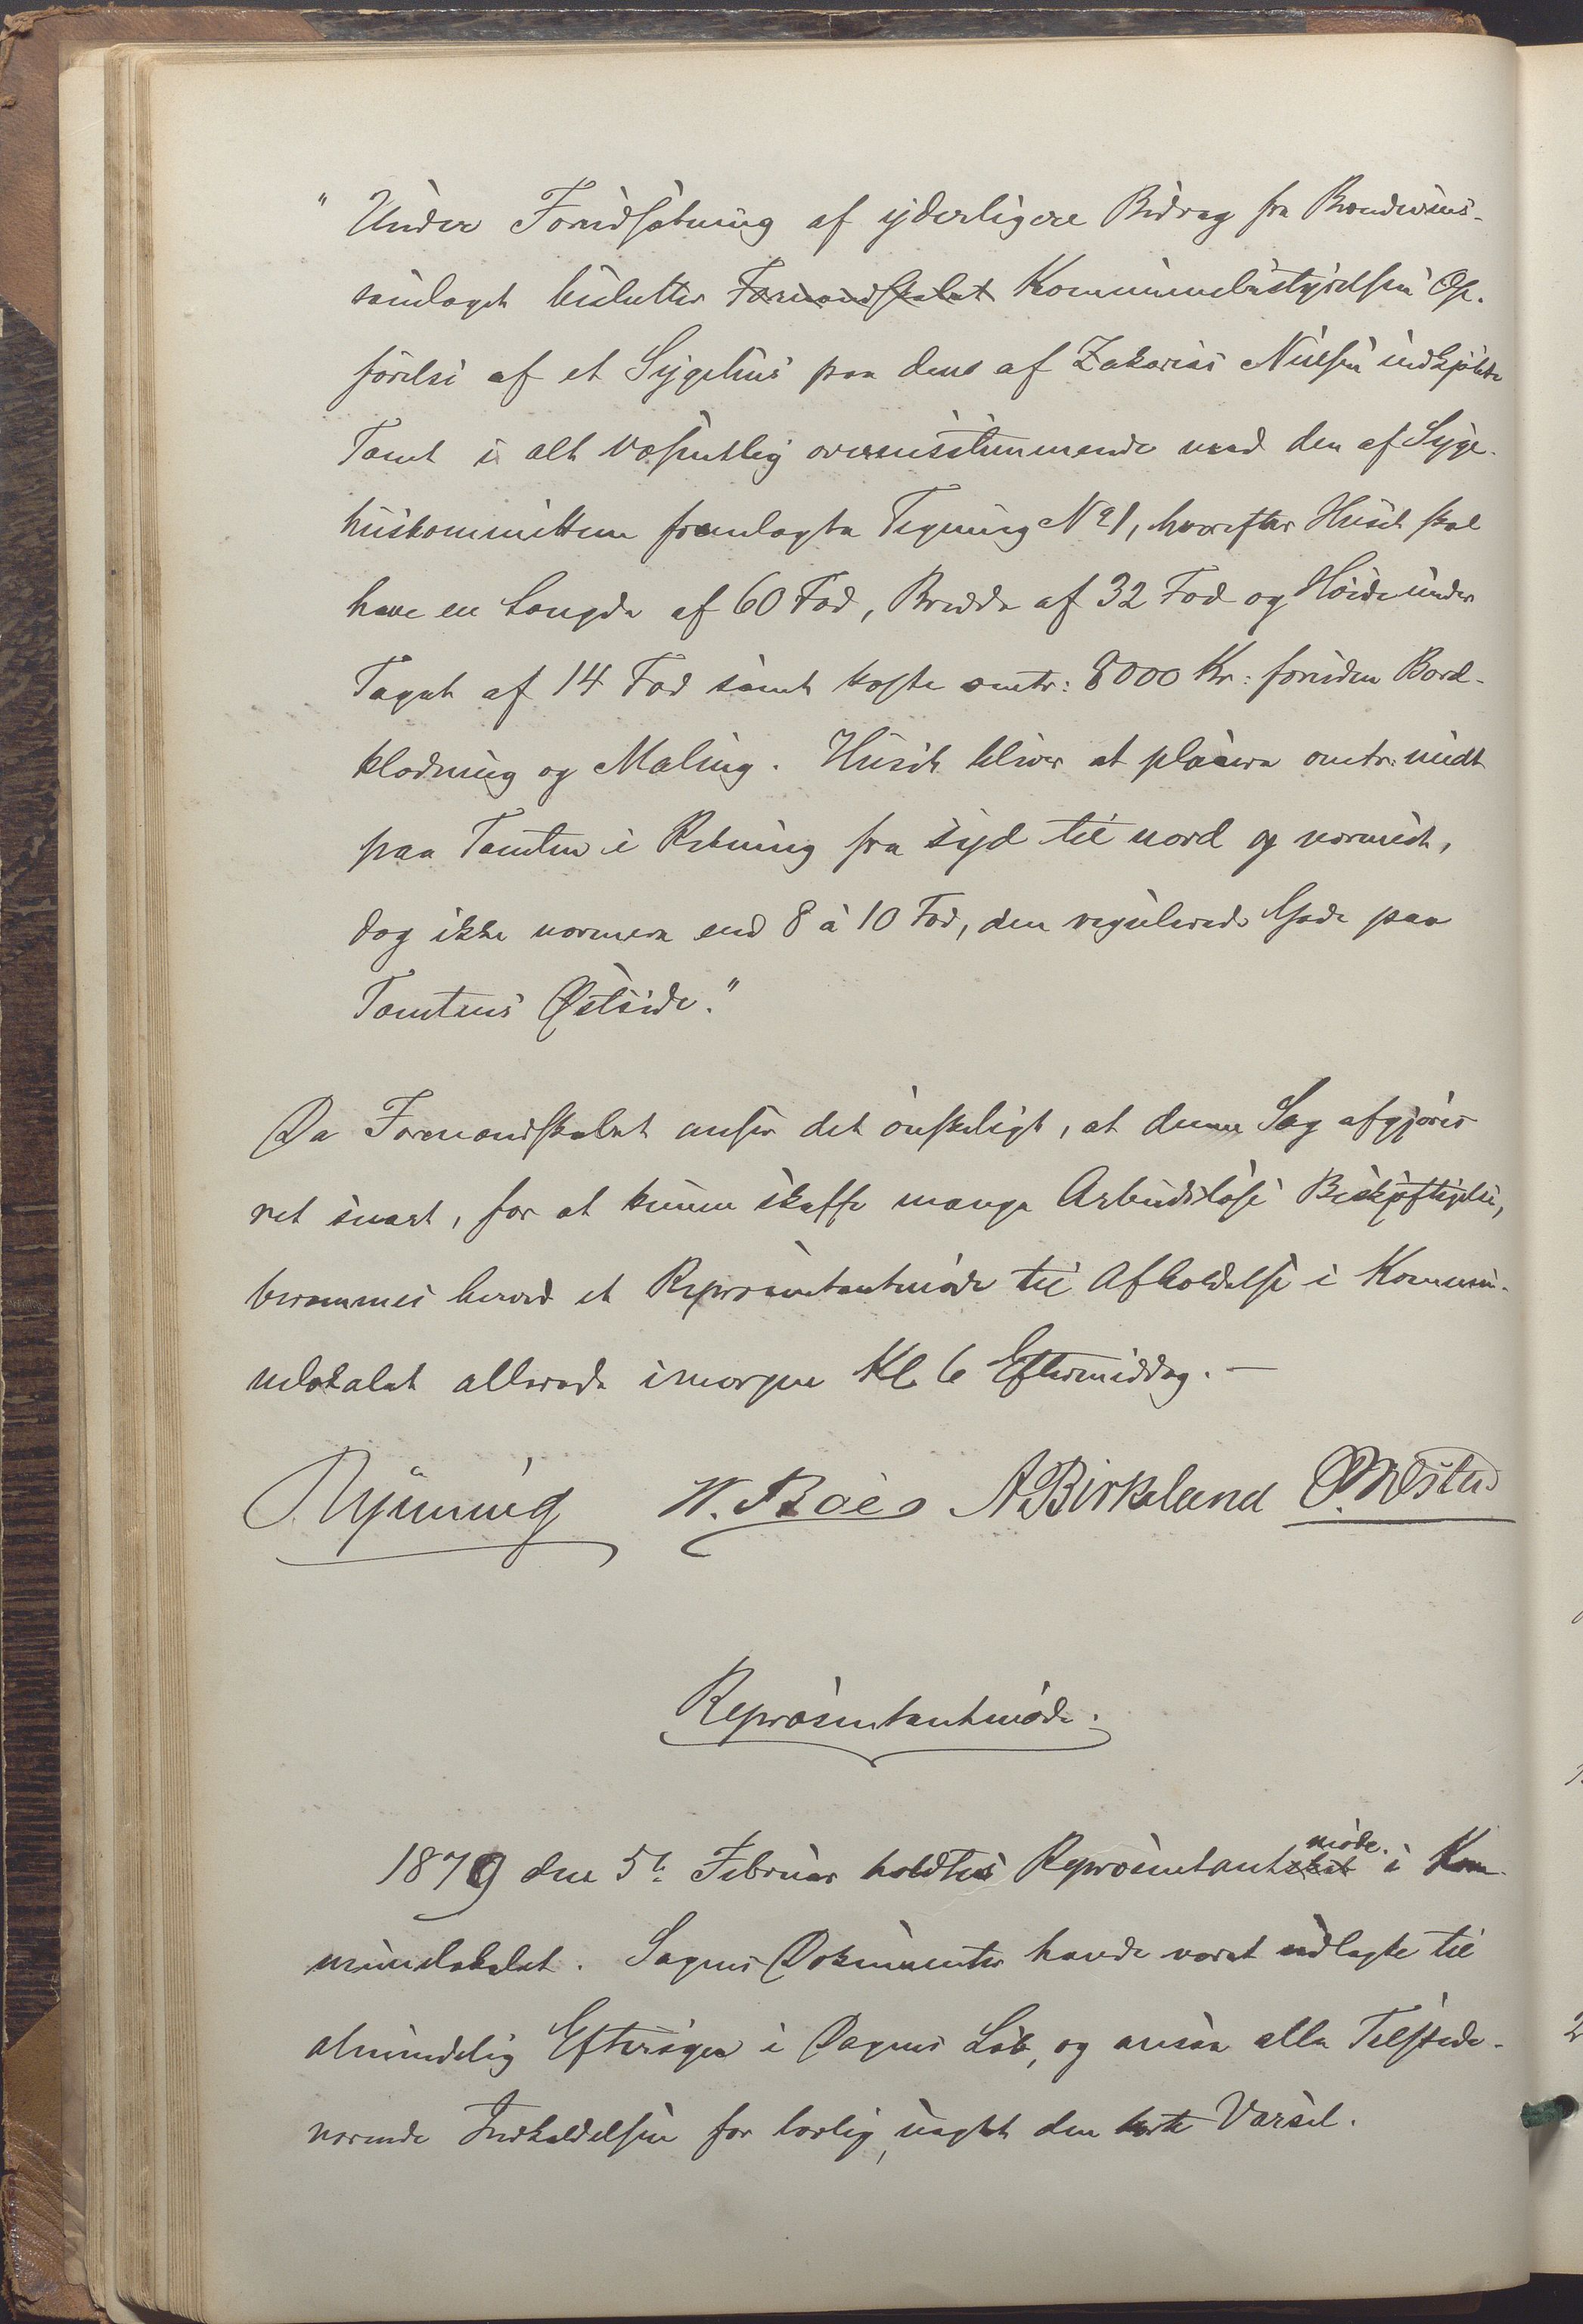 "Under Forudsætning af yderligere Bidrag fra Brændevins-
samlaget beslutter Formandskabet Kommunebestyrelsen Op-
førelse af et Sygehus paa dens af Zakarias Nielsen indkjøbte
Tomt i alt væsentlig overensstemmende med den af Syge-
huskommitteen fremlagte Tegning No 1, hvorefter Huset skal
have en Længde af 60 Fod, Bredde af 32 Fod og Høide under
Taget af 14 Fod samt koste omtr: 8000 Kr: foruden Bord-
klædning og Maling. Huset bliver at placere omtr: midt
paa Tomten i Retning fra syd til nord og nærmest,
dog ikke nærmere end 8 à 10 Fod, den regulerede Gade paa
Tomtens Østside."
Da Formandskabet anser det ønskeligt, at denne Sag afgjøres
ret snart, for at kunne skaffe mange Arbeidsløse Beskjæftigelse,
berammes herved et Repræsentantmøde til Afholdelse i Kommu-
nelokalet allerede imorgen Kl. 6 Eftermiddag. —
Rynning W. Boés A Birkeland
Repræsentantmøde.
1879 den 5te Februar holdtes Repræsentantskab møde i Kom-
munelokalet. Sagens Dokumenter havde været udlagte til
almindelig Eftersyn i Dagens Løb, og ansaa alle Tilstede-
værende Indkaldelsen for lovlig, uagtet den korte Varsel.